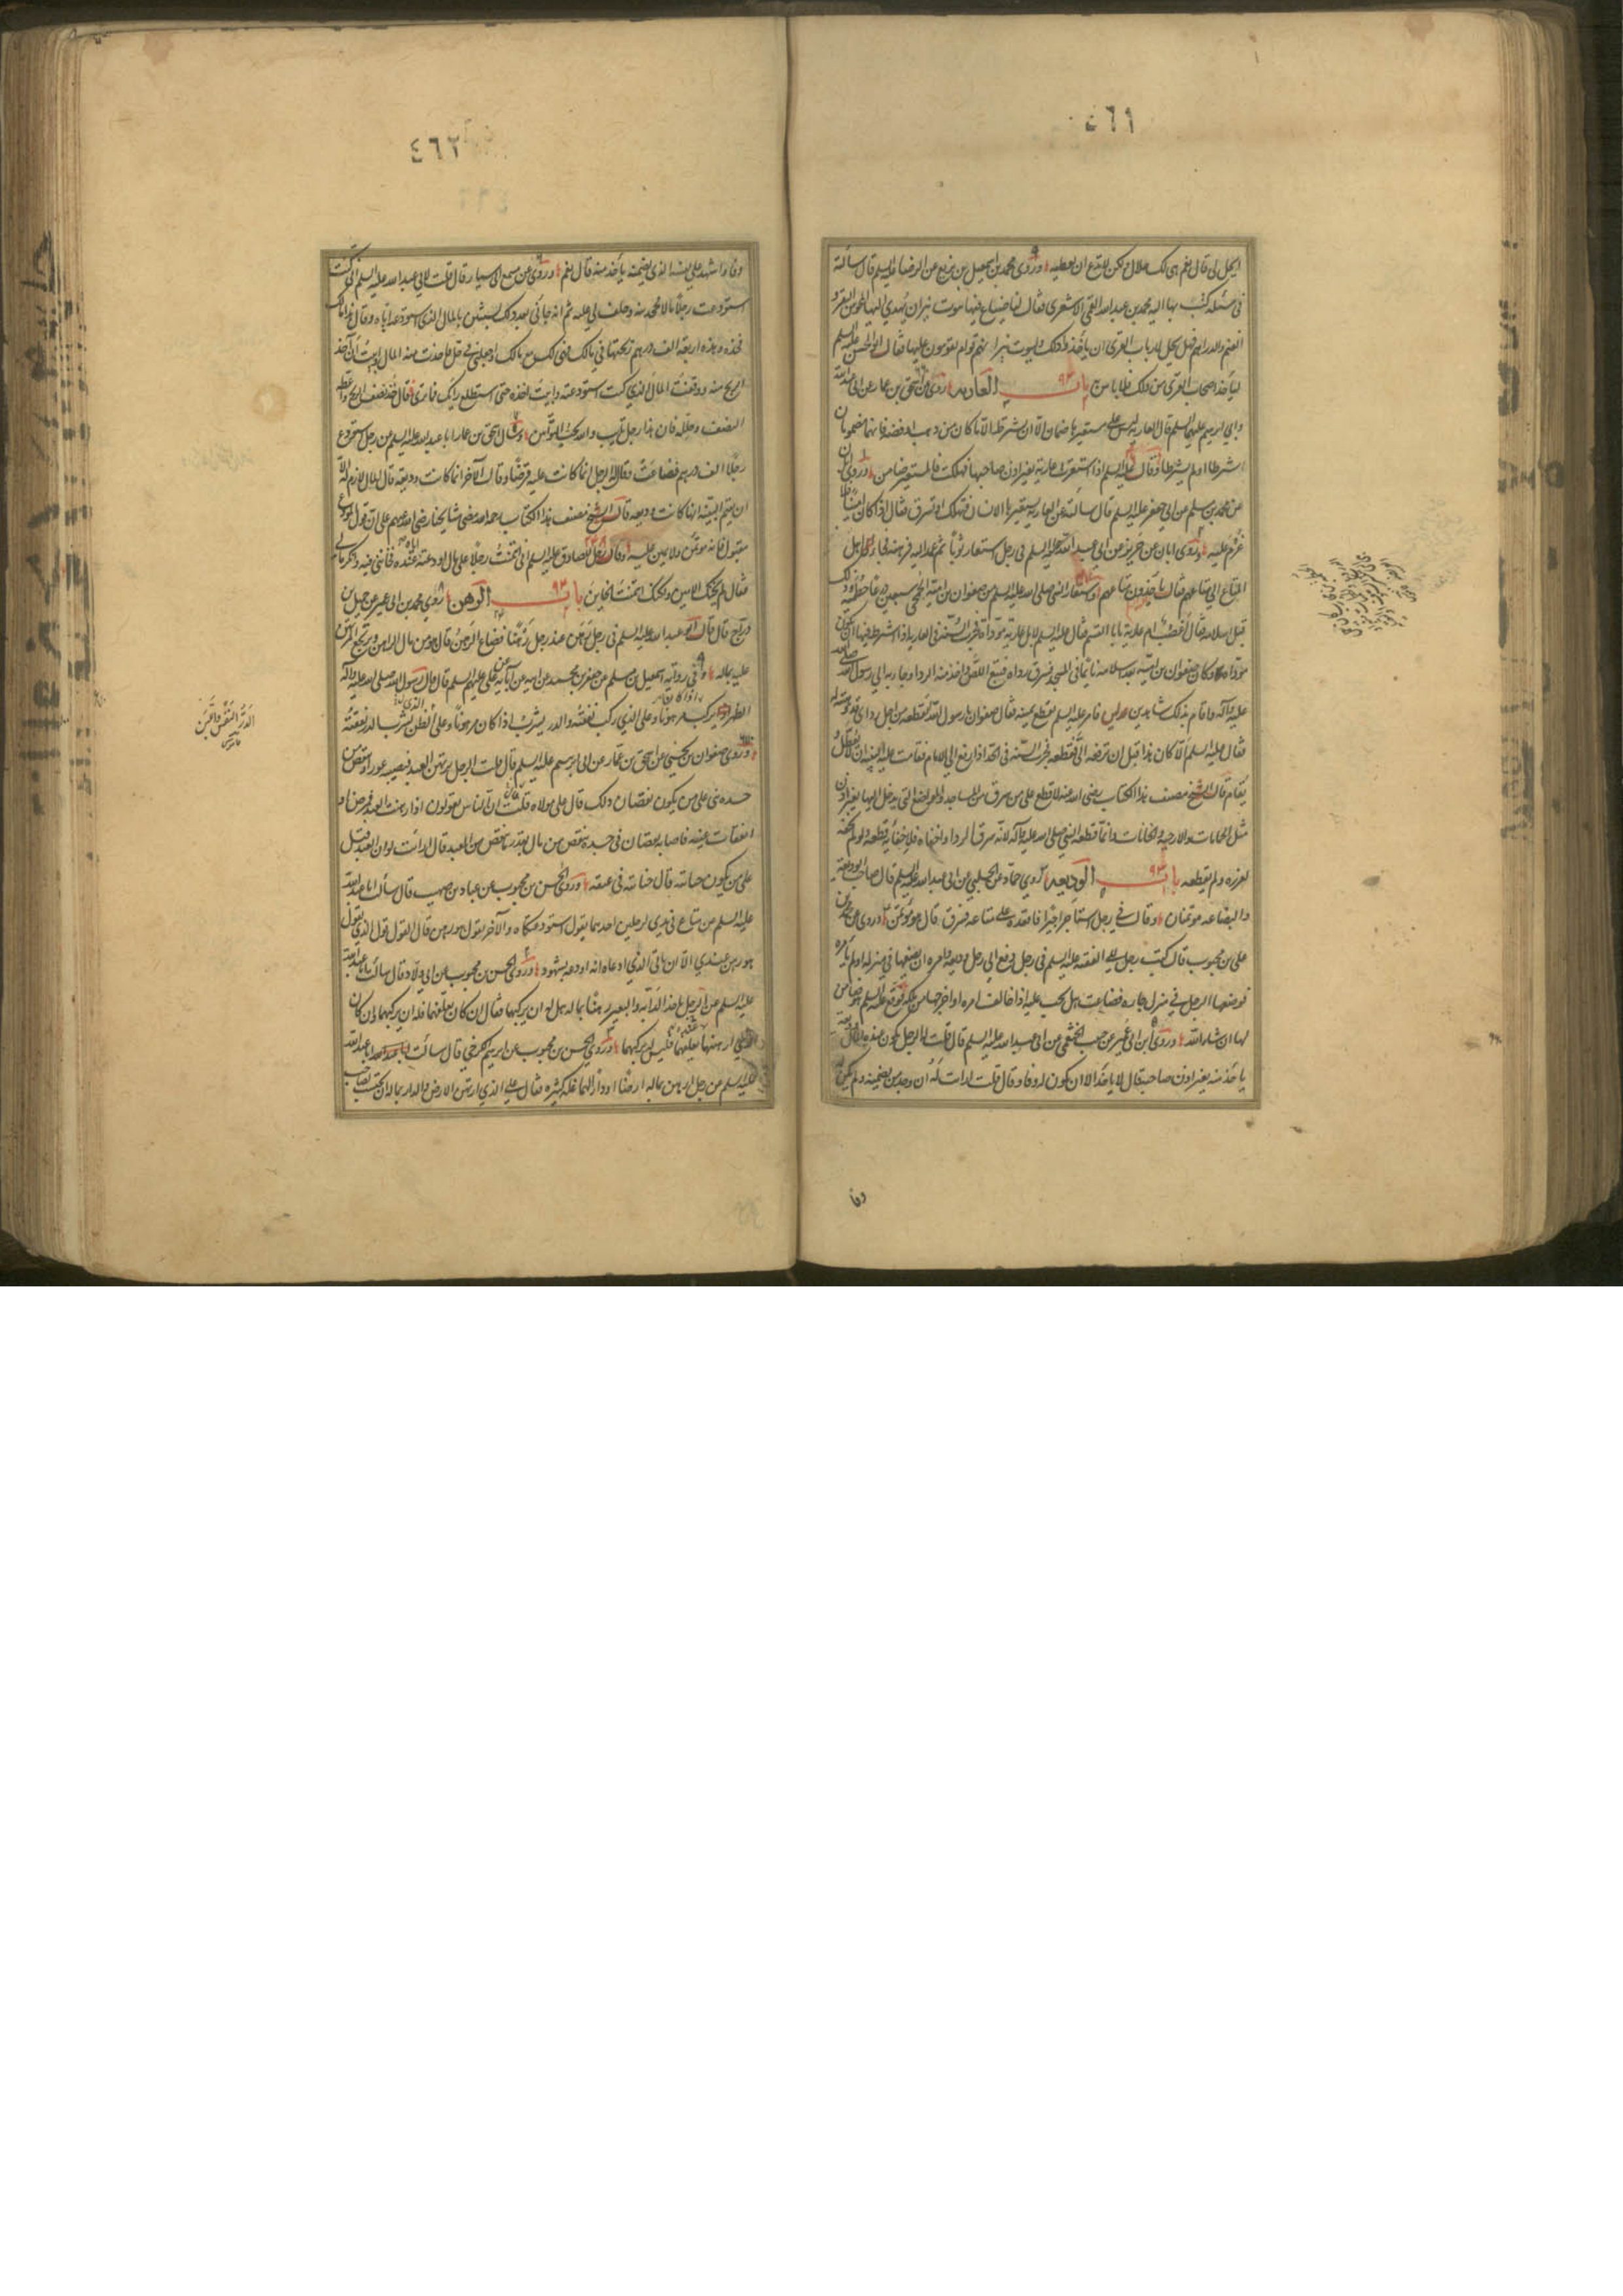 ٤٦١
ايحل لي قال نعم هي لك حلال ولكن لا تدع ان تعطيه وروى محمد بن اسمعيل بن بزيع عن الرضا عليه السلم قال سألته
في مسئلة كتب بها اليه محمد بن عبد الله القمي الاشعري فقال لنا ضياع فيها بيوت نيران يهدي اليها المجوس البقر و
الغنم والدراهم فهل يحل لارباب القرى ان ياخذوا ذلك ولبيوت نيرانهم قوام يقومون عليها فقال ابو الحسن عليه السلم
لياخذ اصحاب القرى من ذلك فلا باس به باب العارية روى اسحق بن عمار عن ابي عبد الله
وابي ابرهيم عليهما السلم قال العارية ليس على مستعيرها ضمان الا ان يشترط الا ما كان من ذهب او فضة فانهما مضمونان
اشترطا او لم يشترطا وقال عليه السلم اذا استعيرت عارية بغير اذن صاحبها فهلكت فالمستعير ضامن وروى ابان
عن محمد بن مسلم عن ابي جعفر عليه السلم قال سألته عن العارية يستعيرها الانسان فتهلك او تسرق فقال اذا كان امينا فلا
غرم عليه وروى ابان عن حريز عن ابي عبد الله عليه السلم في رجل استعار ثوبا ثم عمد اليه فرهنه فجاء اهل
المتاع الى متاعهم فقال ياخذون متاعهم واستعار النبي صلى الله عليه وآله من صفوان بن امية الجمحي سبعين درعا حطمية وذلك
قبل اسلامه فقال اغصب ام عارية يا ابا القسم فقال عليه السلم لا بل عارية مؤداة فجرت السنة في العارية اذا اشترط فيها ان تكون
مؤداة وكان صفوان بن امية بعد اسلامه نائما في المسجد فسرق رداؤه فتبع اللص واخذ منه الرداء وجاء به الى رسول الله صلى الله
عليه وآله واقام بذلك شاهدين عليه فامر عليه السلم بقطع يمينه فقال صفوان يا رسول الله أتقطعه من اجل ردائي قد وهبته له
فقال عليه السلم ألا كان هذا قبل ان ترفعه الي فقطعه فجرت السنة في الحد اذا رفع الى الامام وقامت عليه البينة ان لا يعطل و
يقام قال الشيخ مصنف هذا الكتاب رضي الله عنه لا قطع على من سرق من المساجد والمواضع التي يدخل اليها بغير اذن
مثل الحمامات والارحية والخانات وانما قطعه النبي صلى الله عليه وآله لانه سرق الرداء واخفاه فلاخفائه قطعه ولو لم يخفه
لعزره ولم يقطعه باب الوديعة روى حماد عن الحلبي عن ابي عبد الله عليه السلم قال صاحب الوديعة
والبضاعة مؤتمنان وقال في رجل استاجر اجيرا فاقعده على متاعه فسرق قال هو مؤتمن وروى محمد بن
علي بن محبوب قال كتب رجل الى الفقيه عليه السلم في رجل دفع الى رجل وديعة وامره ان يضعها في منزله او لم يامره
فوضعها الرجل في منزل جاره فضاعت هل يجب عليه اذا خالف امره او اخرجها من ملكه فوقع عليه السلم هو ضامن
لها ان شاء الله وروى ابن ابي عمير عن حبيب الخثعمي عن ابي عبد الله عليه السلم قال قلت له الرجل يكون عنده المال وديعة
ياخذ منه بغير اذن صاحبه قال لا ياخذ الا ان يكون له وفاء وقال قلت ارأيت له ان وجد من يضمنه ولم يكن له
وفاء
٤٦٢
وفاء واشهد على نفسه الذي يضمنه ياخذ منه قال نعم وروى عن مسمع ابي سيار قال قلت لابي عبد الله عليه السلم اني كنت
استودعت رجلا مالا فجحدنيه وحلف لي عليه ثم انه جاءني بعد ذلك بسنتين بالمال الذي استودعته اياه وقال هذا مالك
فخذه وهذه اربعة الف درهم ربحتها في مالك فهي لك مع مالك واجعلني في حل فاخذت منه المال وابيت ان آخذ
الربح منه ووقفت المال الذي كنت استودعته وابيت اخذه حتى استطلع رأيك فما ترى فقال خذ نصف الربح واعطه
النصف وحلله فان هذا رجل تائب والله يحب التوابين وسأل اسحق بن عمار ابا عبد الله عليه السلم عن رجل استودع
رجلا الف درهم فضاعت فقال الرجل انما كانت عليه قرضا وقال الآخر انما كانت وديعة قال المال لازم له الا
ان يقيم البينة انها كانت وديعة قال الشيخ مصنف هذا الكتاب رحمه الله مضى مشايخنا رضي الله عنهم على ان قول المودع
مقبول فانه مؤتمن ولا يمين عليه وقال رجل للصادق عليه السلم اني ائتمنت رجلا على مال اودعته عنده فخانني فيه وانكر مالي
فقال لم يخنك الامين ولكنك ائتمنت الخائن باب الرهن روى محمد بن ابي عمير عن جميل بن
دراج قال قال ابو عبد الله عليه السلم في رجل رهن عند رجل رهنا فضاع الرهن قال هو من مال الراهن ويرتجع المرتهن
عليه بماله وفي رواية اسمعيل بن مسلم عن جعفر بن محمد عن ابيه عن آبائه عن علي عليهم السلم قال قال رسول الله صلى الله عليه وآله
الظهر يركب اذا كان مرهونا وعلى الذي يركب نفقته والدر يشرب اذا كان مرهونا وعلى الذي يشرب الدر نفقته
وروى صفوان بن يحيى عن اسحق بن عمار عن ابي ابرهيم عليه السلم قال قلت الرجل يرتهن العبد فيصيبه عور او ينقص من
جسده شيء على من يكون نقصان ذلك قال على مولاه قلت ان الناس يقولون اذا رهنت العبد فمرض او
انفقات عينه فاصابه نقصان في جسده ينقص من مال بقدر ما ينقص من العبد قال ارأيت لو ان العبد قتل
على من يكون جنايته قال جنايته في عنقه وروى الحسن بن محبوب عن عباد بن صهيب قال سألت ابا عبد الله
عليه السلم عن متاع في يدي رجلين احدهما يقول استودعتكاه والآخر يقول هو رهن قال القول قول الذي يقول
هو رهن عندي الا ان ياتي الذي ادعاه انه اودعه بشهود وروى الحسن بن محبوب عن ابي ولاد قال سألت ابا عبد الله
عليه السلم عن الرجل ياخذ الدابة والبعير رهنا بماله هل له ان يركبهما فقال ان كان يعلفهما فله ان يركبهما وان كان
الذي ارهنهما يعلفهما فليس له يركبهما وروى الحسن بن محبوب عن ابرهيم الكرخي قال سألت ابا عبد الله
عليه السلم عن رجل ارهن بماله ارضا او دارا لهما غلة كثيرة فقال على الذي ارتهن الارض والدار بماله ان يحتسب لصاحب